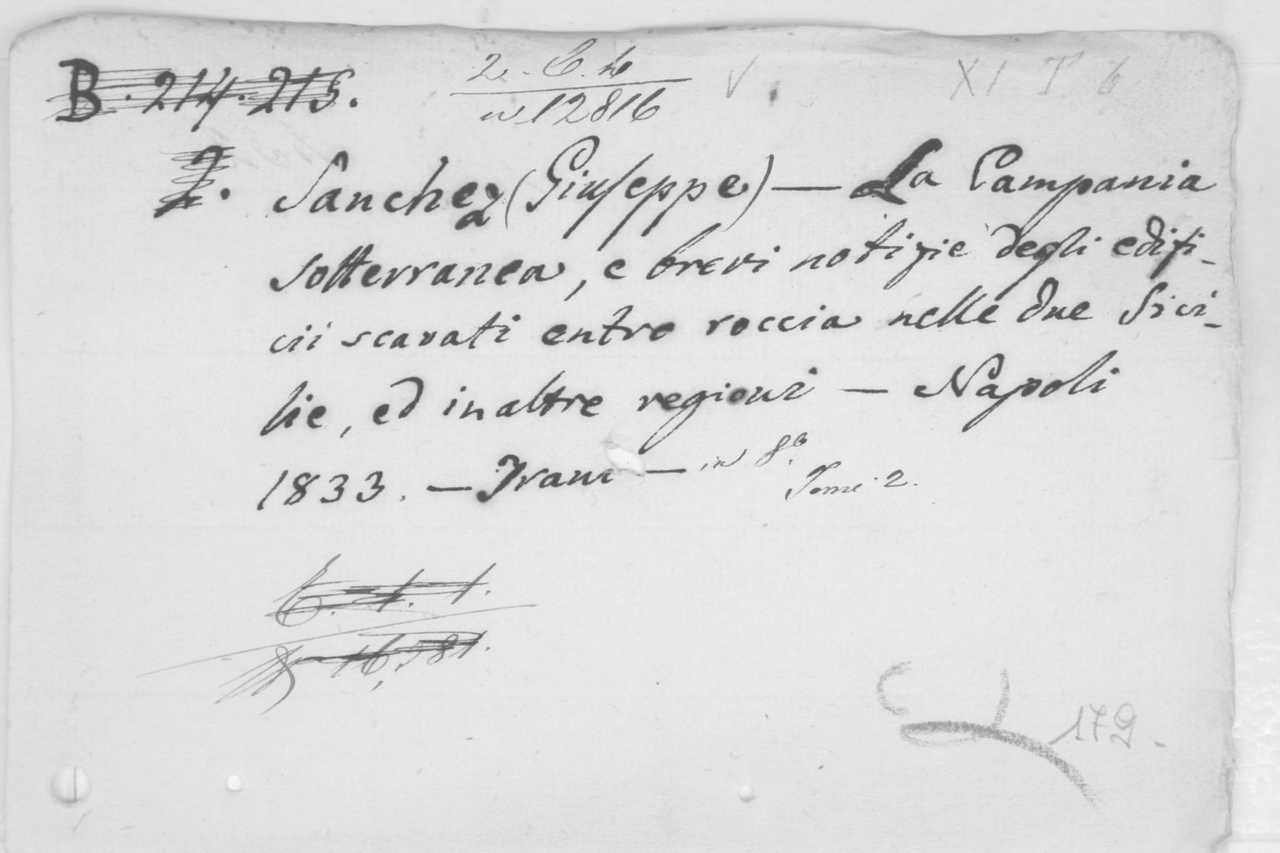 B. 214. 215.
2. C. 4
n 12816
V
XI T 6
2.
Sanchez (Giuseppe) — La Campania
sotterranea, e brevi notizie degli edifi-
cii scavati entro roccia nelle due Sici-
lie, ed in altre regioni — Napoli
1833. — Trani — in 8.º
Tomi 2.
C. 1. 1.
179.